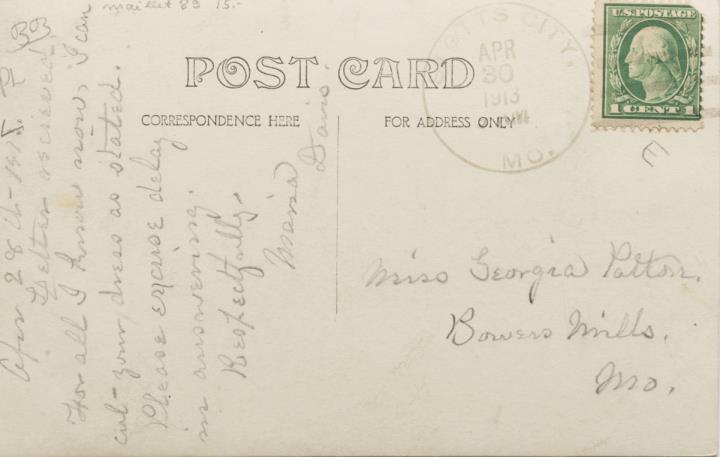 maillet 83 15.-
POST CARD
CORRESPONDENCE HERE
FOR ADDRESS ONLY
TTS CITY.
APR
30
1913
MO.
U.S. POSTAGE
1 CENT 1
Letter recieved.
For all I know now, I can
cut your dress as stated.
Please excuse delay
in answering.
Respectfully.
Maria Davis.
Miss Georgia Patton.
Bowers Mills.
Mo.